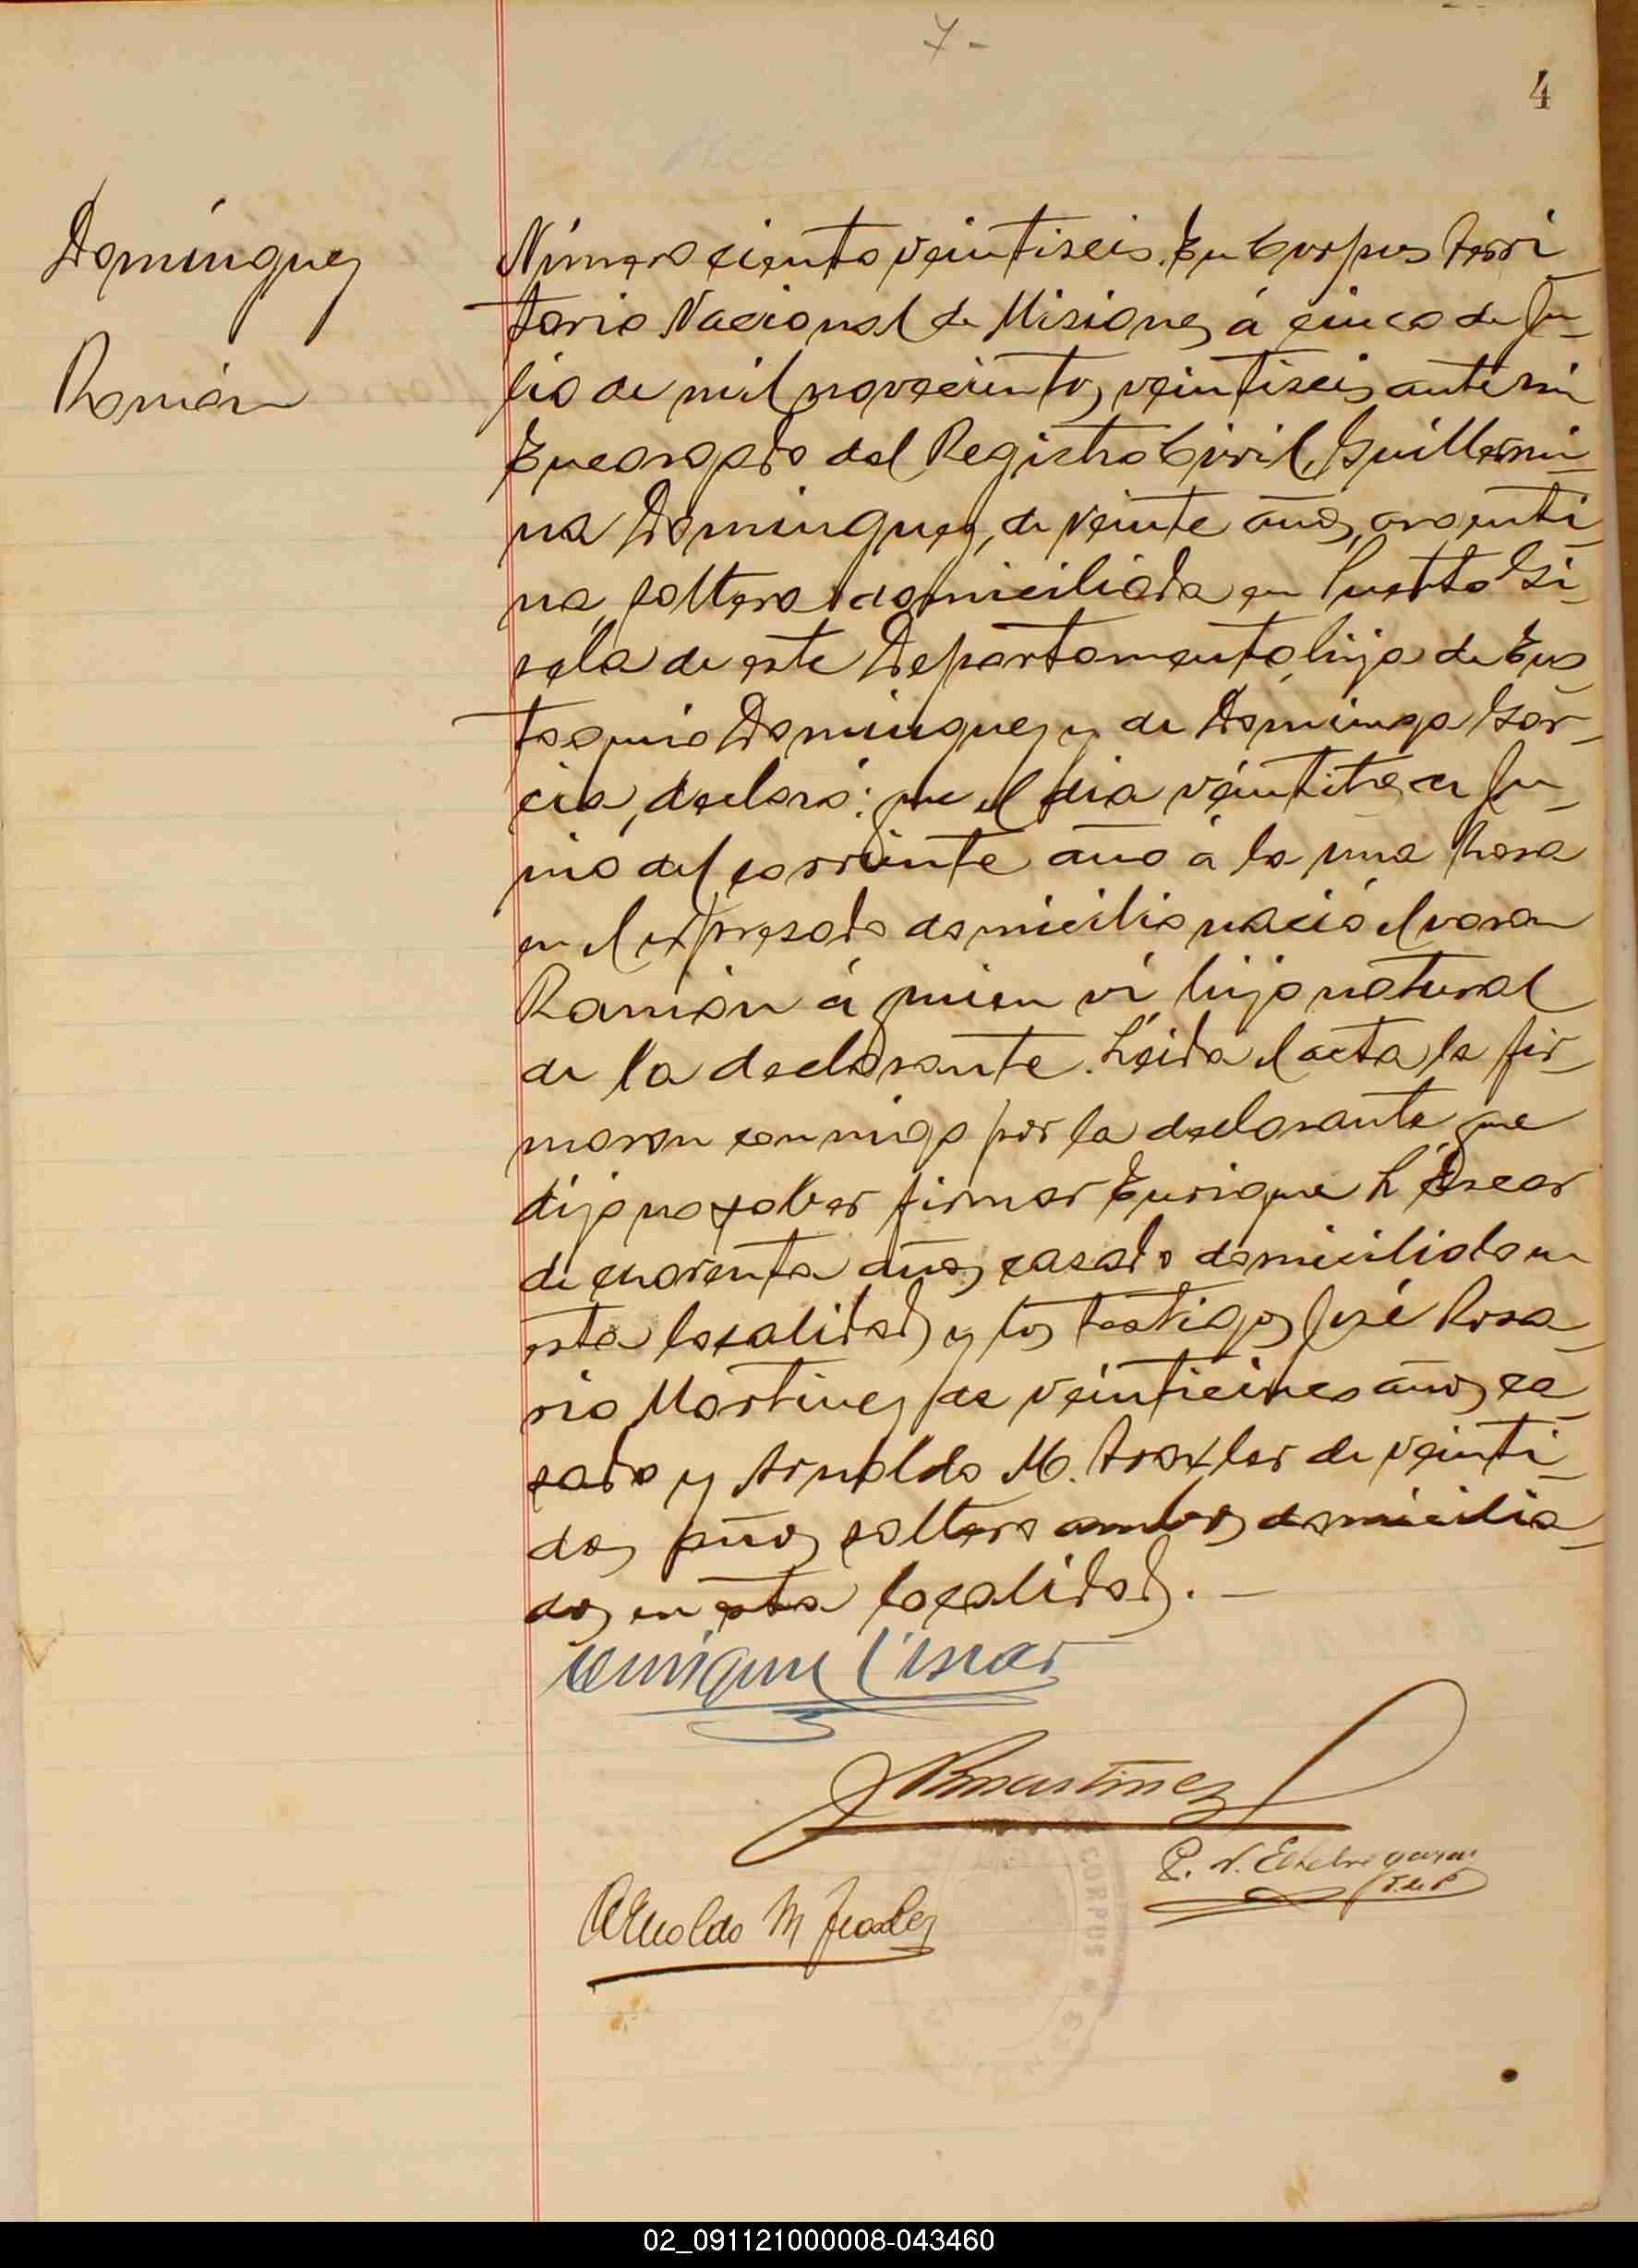 7-
4
Domínguez
Ramón
Número ciento veintiseis. En Corpus Terri
torio Nacional de Misiones á cinco de Ju-
lio de mil novecientos veintiseis ante mi
Encargado del Registro Civil, Guillermi-
na Dominguez, de veinte años, argenti-
na, soltera domiciliada en Puerto Gi-
sela de este Departamento, hija de Eus-
taquio Dominguez y de Dominga Gar-
cia, declaró: que el dia veintitres de Ju-
nio del corriente año á la una hora
en el expresado domicilio nació el varon
Ramón á quien vi hijo natural
de la declarante. Leida el acta la fir-
maron conmigo por la declarante que
dijo no saber firmar Enrique
de cuarenta años, casado domiciliado en
esta localidad y los testigos José Rosa-
rio Martinez de veinticinco años, ca-
sado y Arnoldo M. Traxler de veinti-
dos años soltero ambos domicilia-
dos en esta localidad.-
Enrique
JRMartínez
P. N. Echelvegaray
J. de P
Arnoldo M Traxler
CORPUS
02_091121000008-043460